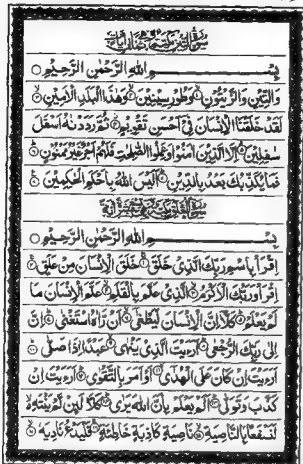 بِسْمِ اللهِ الرَّحْمٰنِ الرَّحِيْمِ ○
وَالتِّيْنِ وَالزَّيْتُوْنِ ○ وَطُوْرِ سِيْنِيْنَ ○ وَهٰذَا الْبَلَدِ الْاَمِيْنِ ○
لَقَدْ خَلَقْنَا الْاِنْسَانَ فِيْ اَحْسَنِ تَقْوِيْمٍ ○ ثُمَّ رَدَدْنٰهُ اَسْفَلَ
سٰفِلِيْنَ ○ اِلَّا الَّذِيْنَ اٰمَنُوْا وَعَمِلُوا الصّٰلِحٰتِ فَلَهُمْ اَجْرٌ غَيْرُ مَمْنُوْنٍ ○
فَمَا يُكَذِّبُكَ بَعْدُ بِالدِّيْنِ ○ اَلَيْسَ اللهُ بِاَحْكَمِ الْحٰكِمِيْنَ ○
بِسْمِ اللهِ الرَّحْمٰنِ الرَّحِيْمِ ○
اِقْرَاْ بِاسْمِ رَبِّكَ الَّذِيْ خَلَقَ ○ خَلَقَ الْاِنْسَانَ مِنْ عَلَقٍ ○
اِقْرَاْ وَرَبُّكَ الْاَكْرَمُ ○ الَّذِيْ عَلَّمَ بِالْقَلَمِ ○ عَلَّمَ الْاِنْسَانَ مَا
لَمْ يَعْلَمْ ○ كَلَّا اِنَّ الْاِنْسَانَ لَيَطْغٰى ○ اَنْ رَّاٰهُ اسْتَغْنٰى ○ اِنَّ
اِلٰى رَبِّكَ الرُّجْعٰى ○ اَرَءَيْتَ الَّذِيْ يَنْهٰى ○ عَبْدًا اِذَا صَلّٰى ○
اَرَءَيْتَ اِنْ كَانَ عَلَى الْهُدٰى ○ اَوْ اَمَرَ بِالتَّقْوٰى ○ اَرَءَيْتَ اِنْ
كَذَّبَ وَتَوَلّٰى ○ اَلَمْ يَعْلَمْ بِاَنَّ اللهَ يَرٰى ○ كَلَّا لَئِنْ لَّمْ يَنْتَهِ
لَنَسْفَعًا بِالنَّاصِيَةِ ○ نَاصِيَةٍ كَاذِبَةٍ خَاطِئَةٍ ○ فَلْيَدْعُ نَادِيَهٗ ○